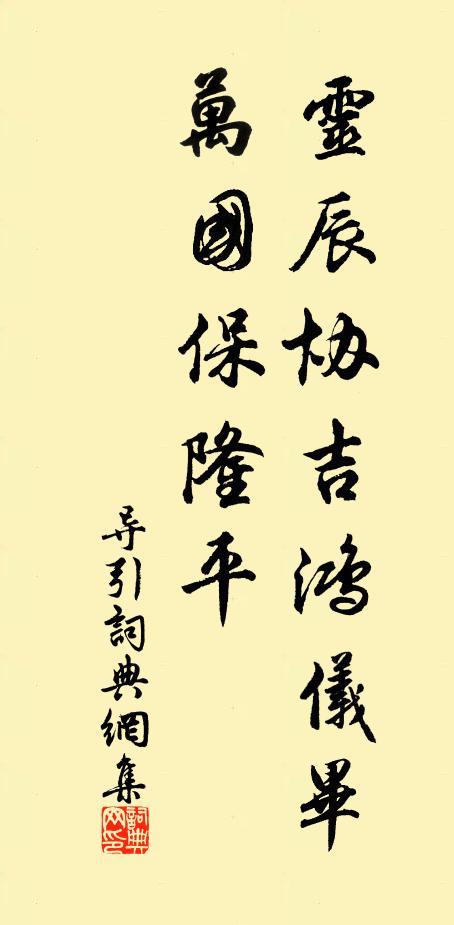 靈辰协吉鴻儀畢
萬國保隆平
导引詞典網集
詞典網印